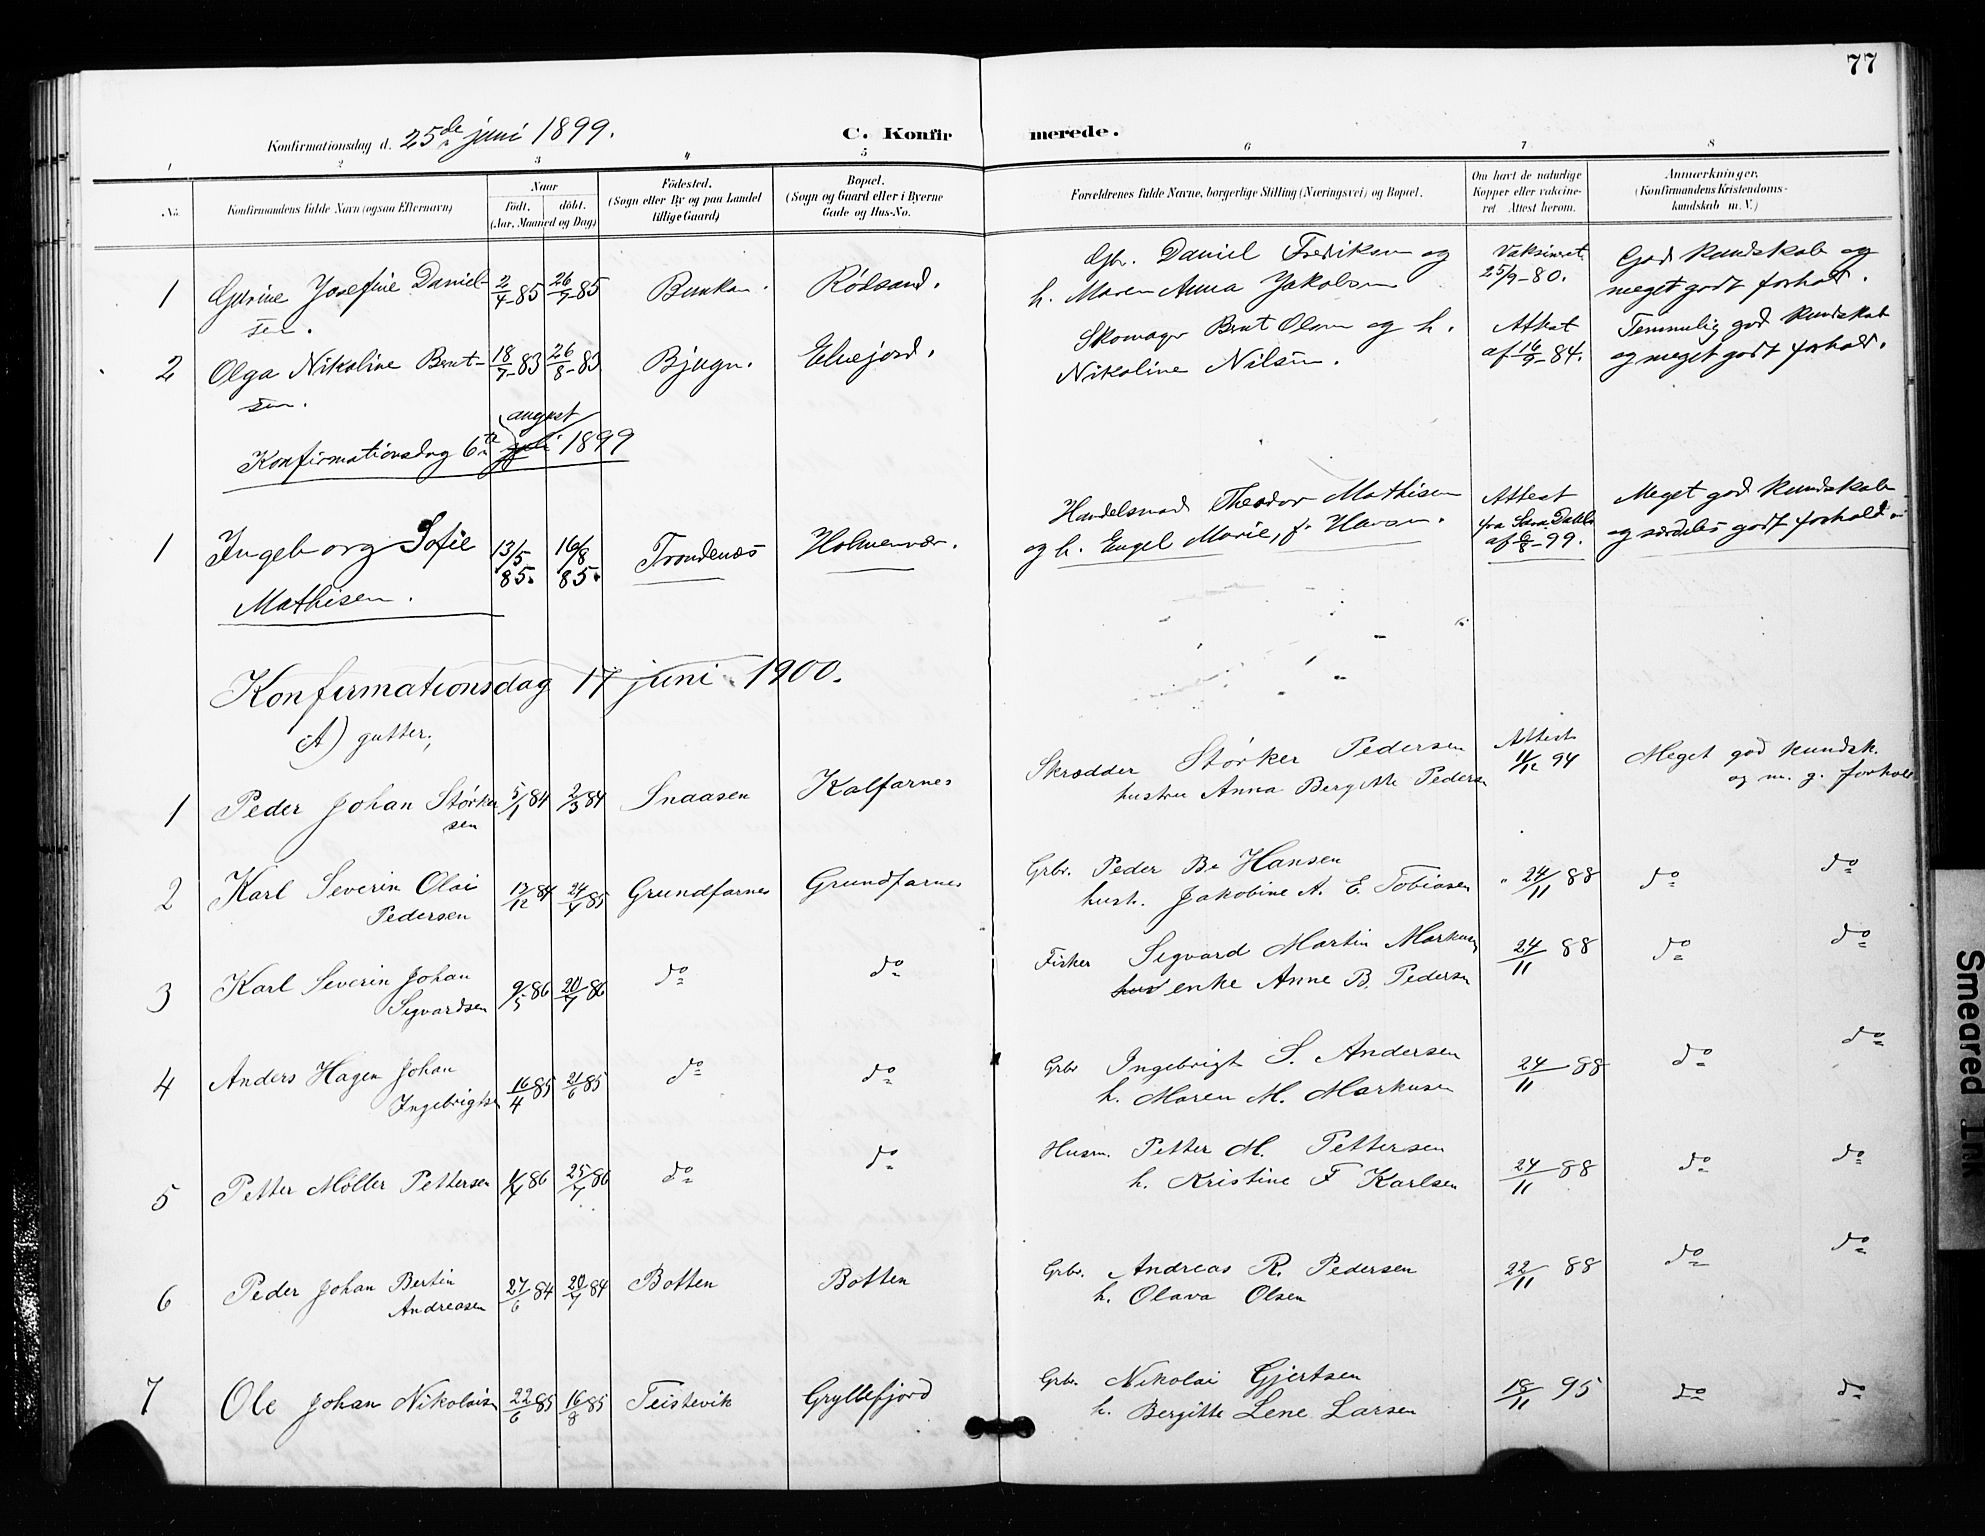 77
Konfirmationsdag d. 25de juni 1899.
C. Konfirmerede.
1 2 3 4 5 6 7 8
No.
Konfirmandens fulde Navn (ogsaa Efternavn)
Naar
født. døbt.
(Aar, Maaned og Dag)
Fødested.
(Sogn eller By og paa Landet
tillige Gaard)
Bopæl.
(Sogn og Gaard eller i Byerne
Gade og Hus-No.
Forældrenes fulde Navne, borgerlige Stilling (Næringsvei) og Bopæl.
Om havt de naturlige
Kopper eller vakcine-
ret Attest herom.
Anmærkninger.
(Konfirmandens Kristendoms-
kundskab m. V.)
1 Josefine Daniel-
sen. 2/4-85 26/7-85 Rødsand.
Gbr. Daniel Frediksen og
h. Maren Anna Jakobsen
Vaksineret
25/9-80.
God kundskab og
meget godt forhold.
2 Olga Nikoline Bernt-
sen. 18/7-83 26/8-83 Bjugn. Elvejord.
Skomager Bernt Olsen og h.
Nikoline Nilsen.
Attest
af 16/9-84.
Temmelig god kundskab
og meget godt forhold.
Konfirmationsdag 6te august 1899
1 Ingeborg Sofie
Mathisen. 13/5 85. 16/8 85. Trondenæs Holmenvær.
Handelsmand Theodor Mathisen
og h. Engel Marie, f. Hansen.
Attest
fra
af 6/8-99.
Meget god kundskab
og særdeles godt forhold
Konfirmationsdag 17 juni 1900.
A) gutter;
1 Peder Johan Størker
sen 5/1 84 2/3 84 Snaasen Kalfarnes
Skrædder Størker Pedersen
hustru Anna Bergitte Pedersen
Attest
11/12 94
Meget god kundsk.
og m. g. forhold
2 Karl Severin Olai
Pedersen 17/12 84 24/4 85 Grundfarnes Grundfarnes
Grbr. Peder Br Hansen
hust. Jakobine A. E. Tobiasen
" 24/11 88 do do
3 Karl Severin Johan
Sigvardsen 9/5 86 20/7 86 do do
Fisker Sigvard Martin Markusen
enke Anne B. Pedersen
24/11 88 do do
4 Anders Hagen Johan
Ingebrigtsen 16/4 85 21/6 85 do do
Grbr Ingebrigt S. Andersen
h. Maren M. Markusen
24/11 88 do do
5 Petter Møller Pettersen 86 25/7 86 do do
Husm. Petter M. Pettersen
h. Kristine F Karlsen
24/11 88 do do
6 Peder Johan Bertin
Andreasen 27/6 84 20/7 84 Botten Botten
Grbr. Andreas R. Pedersen
h. Olava Olsen
22/11 88 do do
7 Ole Johan Nikolaisen 22/6 85 16/8 85 Teistevik Gryllefjord
Grbr. Nikolai Gjertsen
h. Bergitte Lene Larsen
18/11 95 do do
Smeared Ink